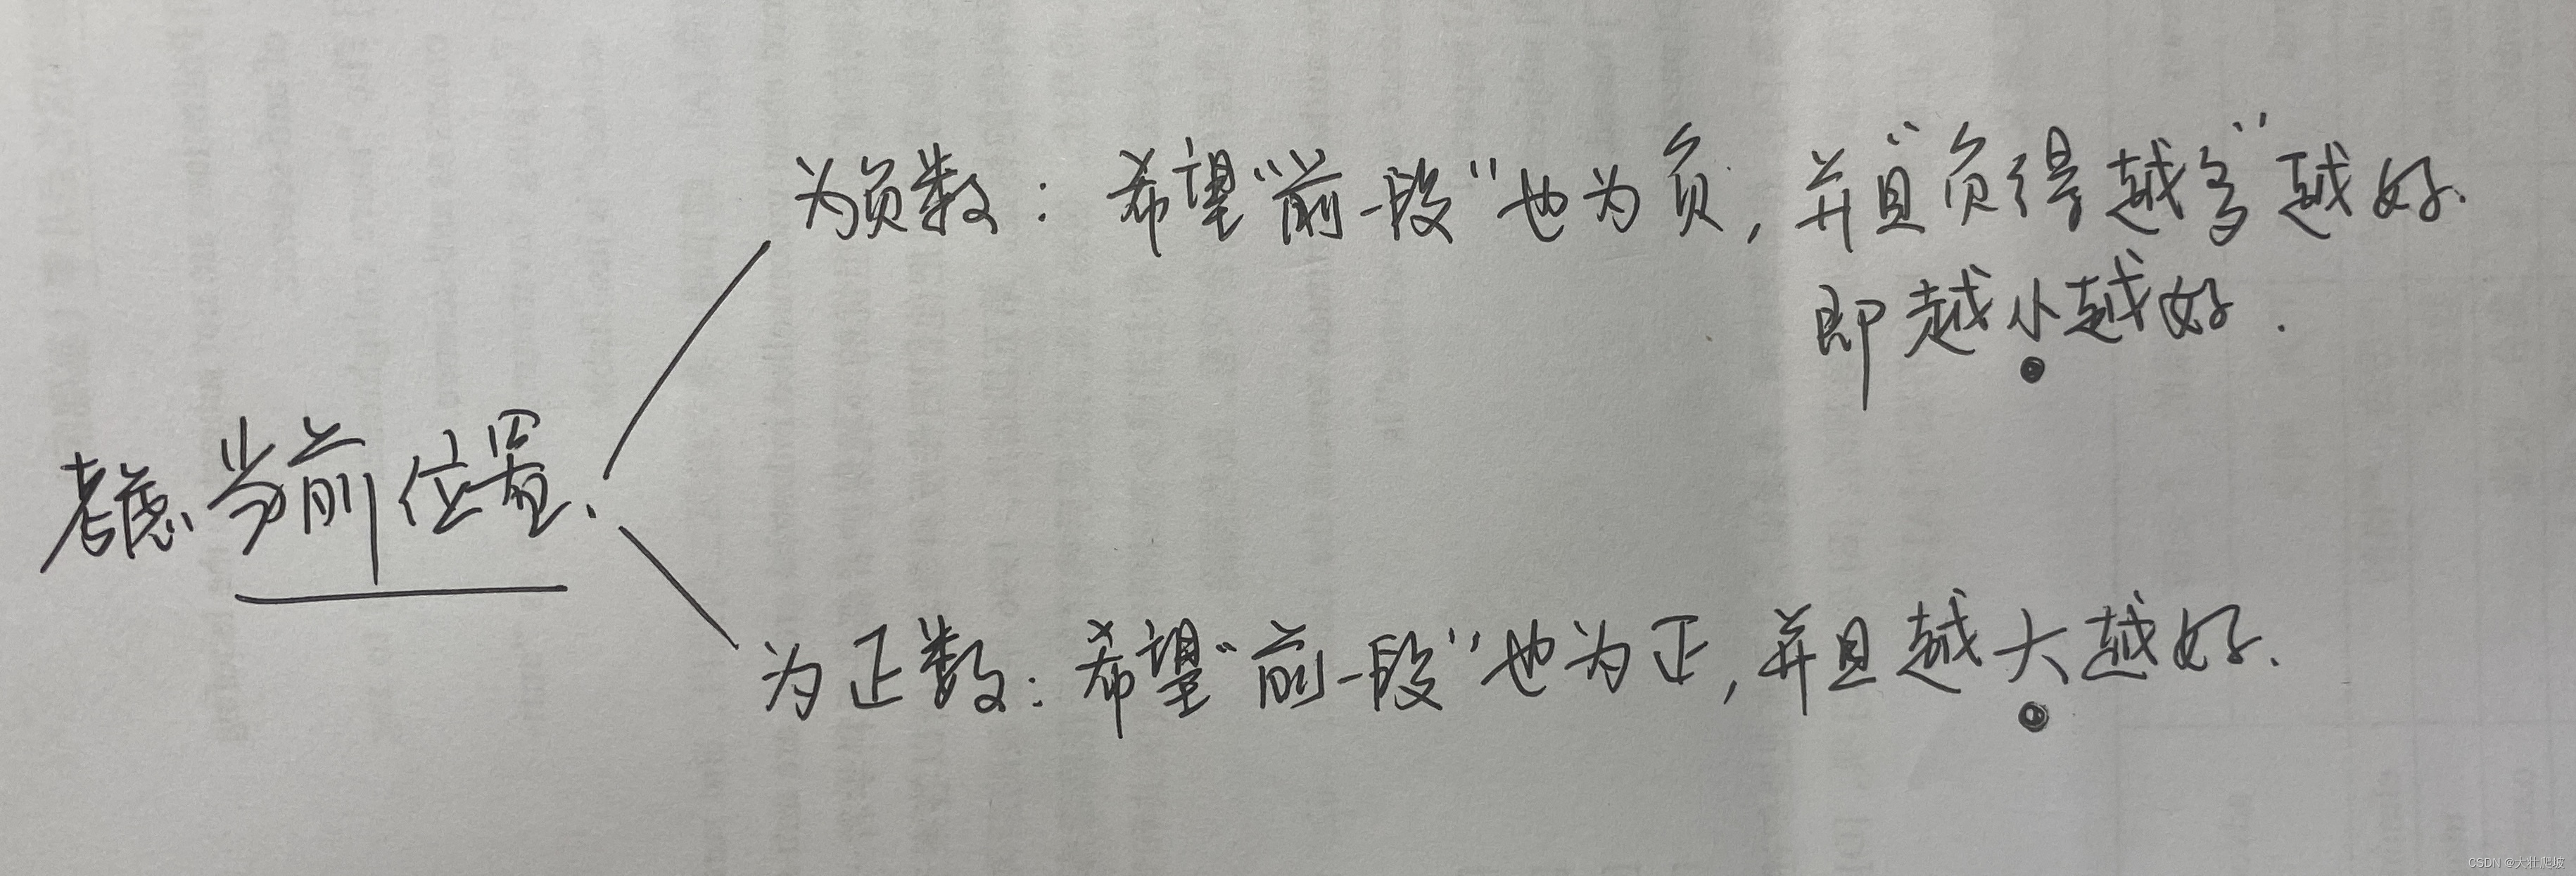 为负数：希望“前一段”也为负，并且“负得越多”越好.
即越小越好.
考虑当前位置.
为正数：希望“前一段”也为正，并且越大越好.
CSDN @大壮爬坡